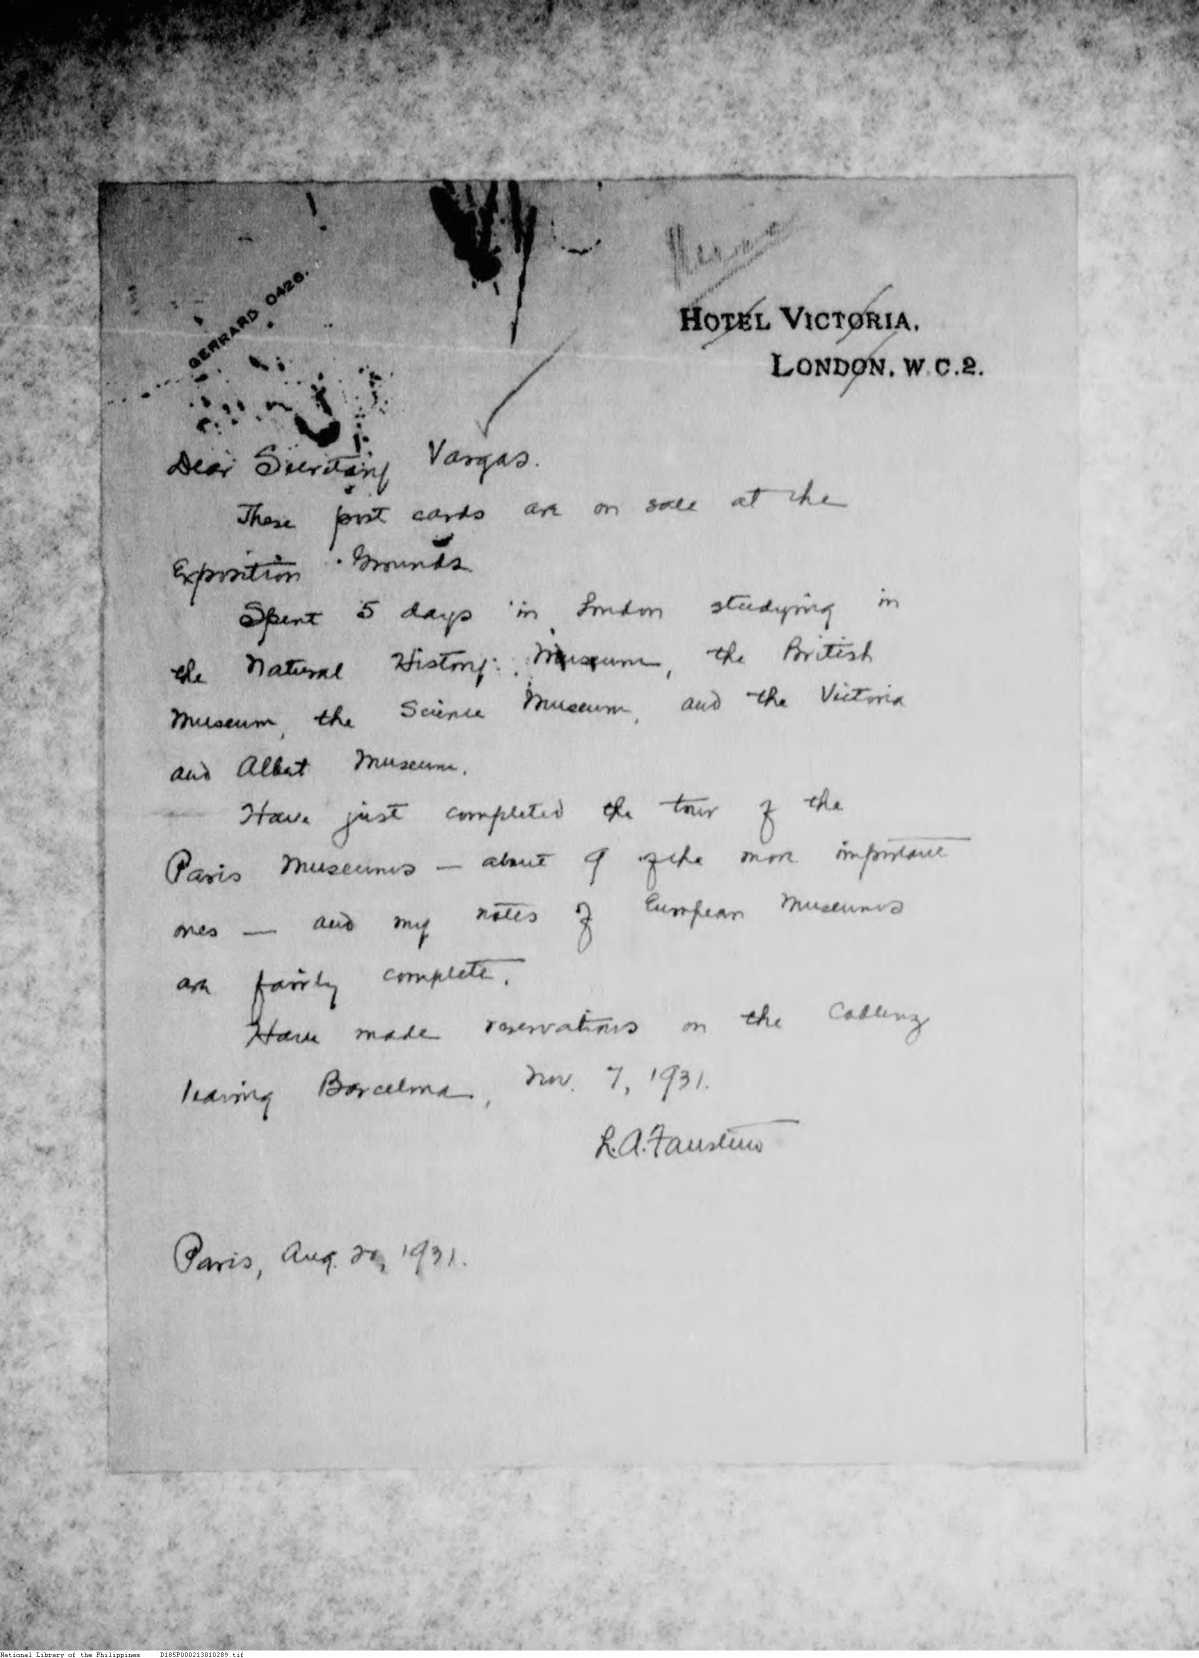 GERRARD 0426.
HOTEL VICTORIA,
LONDON, W.C.2.
Dear Secretary Vargas.
These post cards are on sale at the
Exposition Grounds.
Spent 5 days in London studying in
the Natural History Museum, the British
Museum, the Science Museum, and the Victoria
and Albert Museum.
Have just completed the tour of the
Paris Museums — about 9 of the more important
ones — and my notes of European Museums
are fairly complete.
Have made reservations on the Coblenz
leaving Barcelona, Nov. 7, 1931.
L.A. Faustino
Paris, Aug. 20, 1931.
National Library of the Philippines D185P000213810289.tif